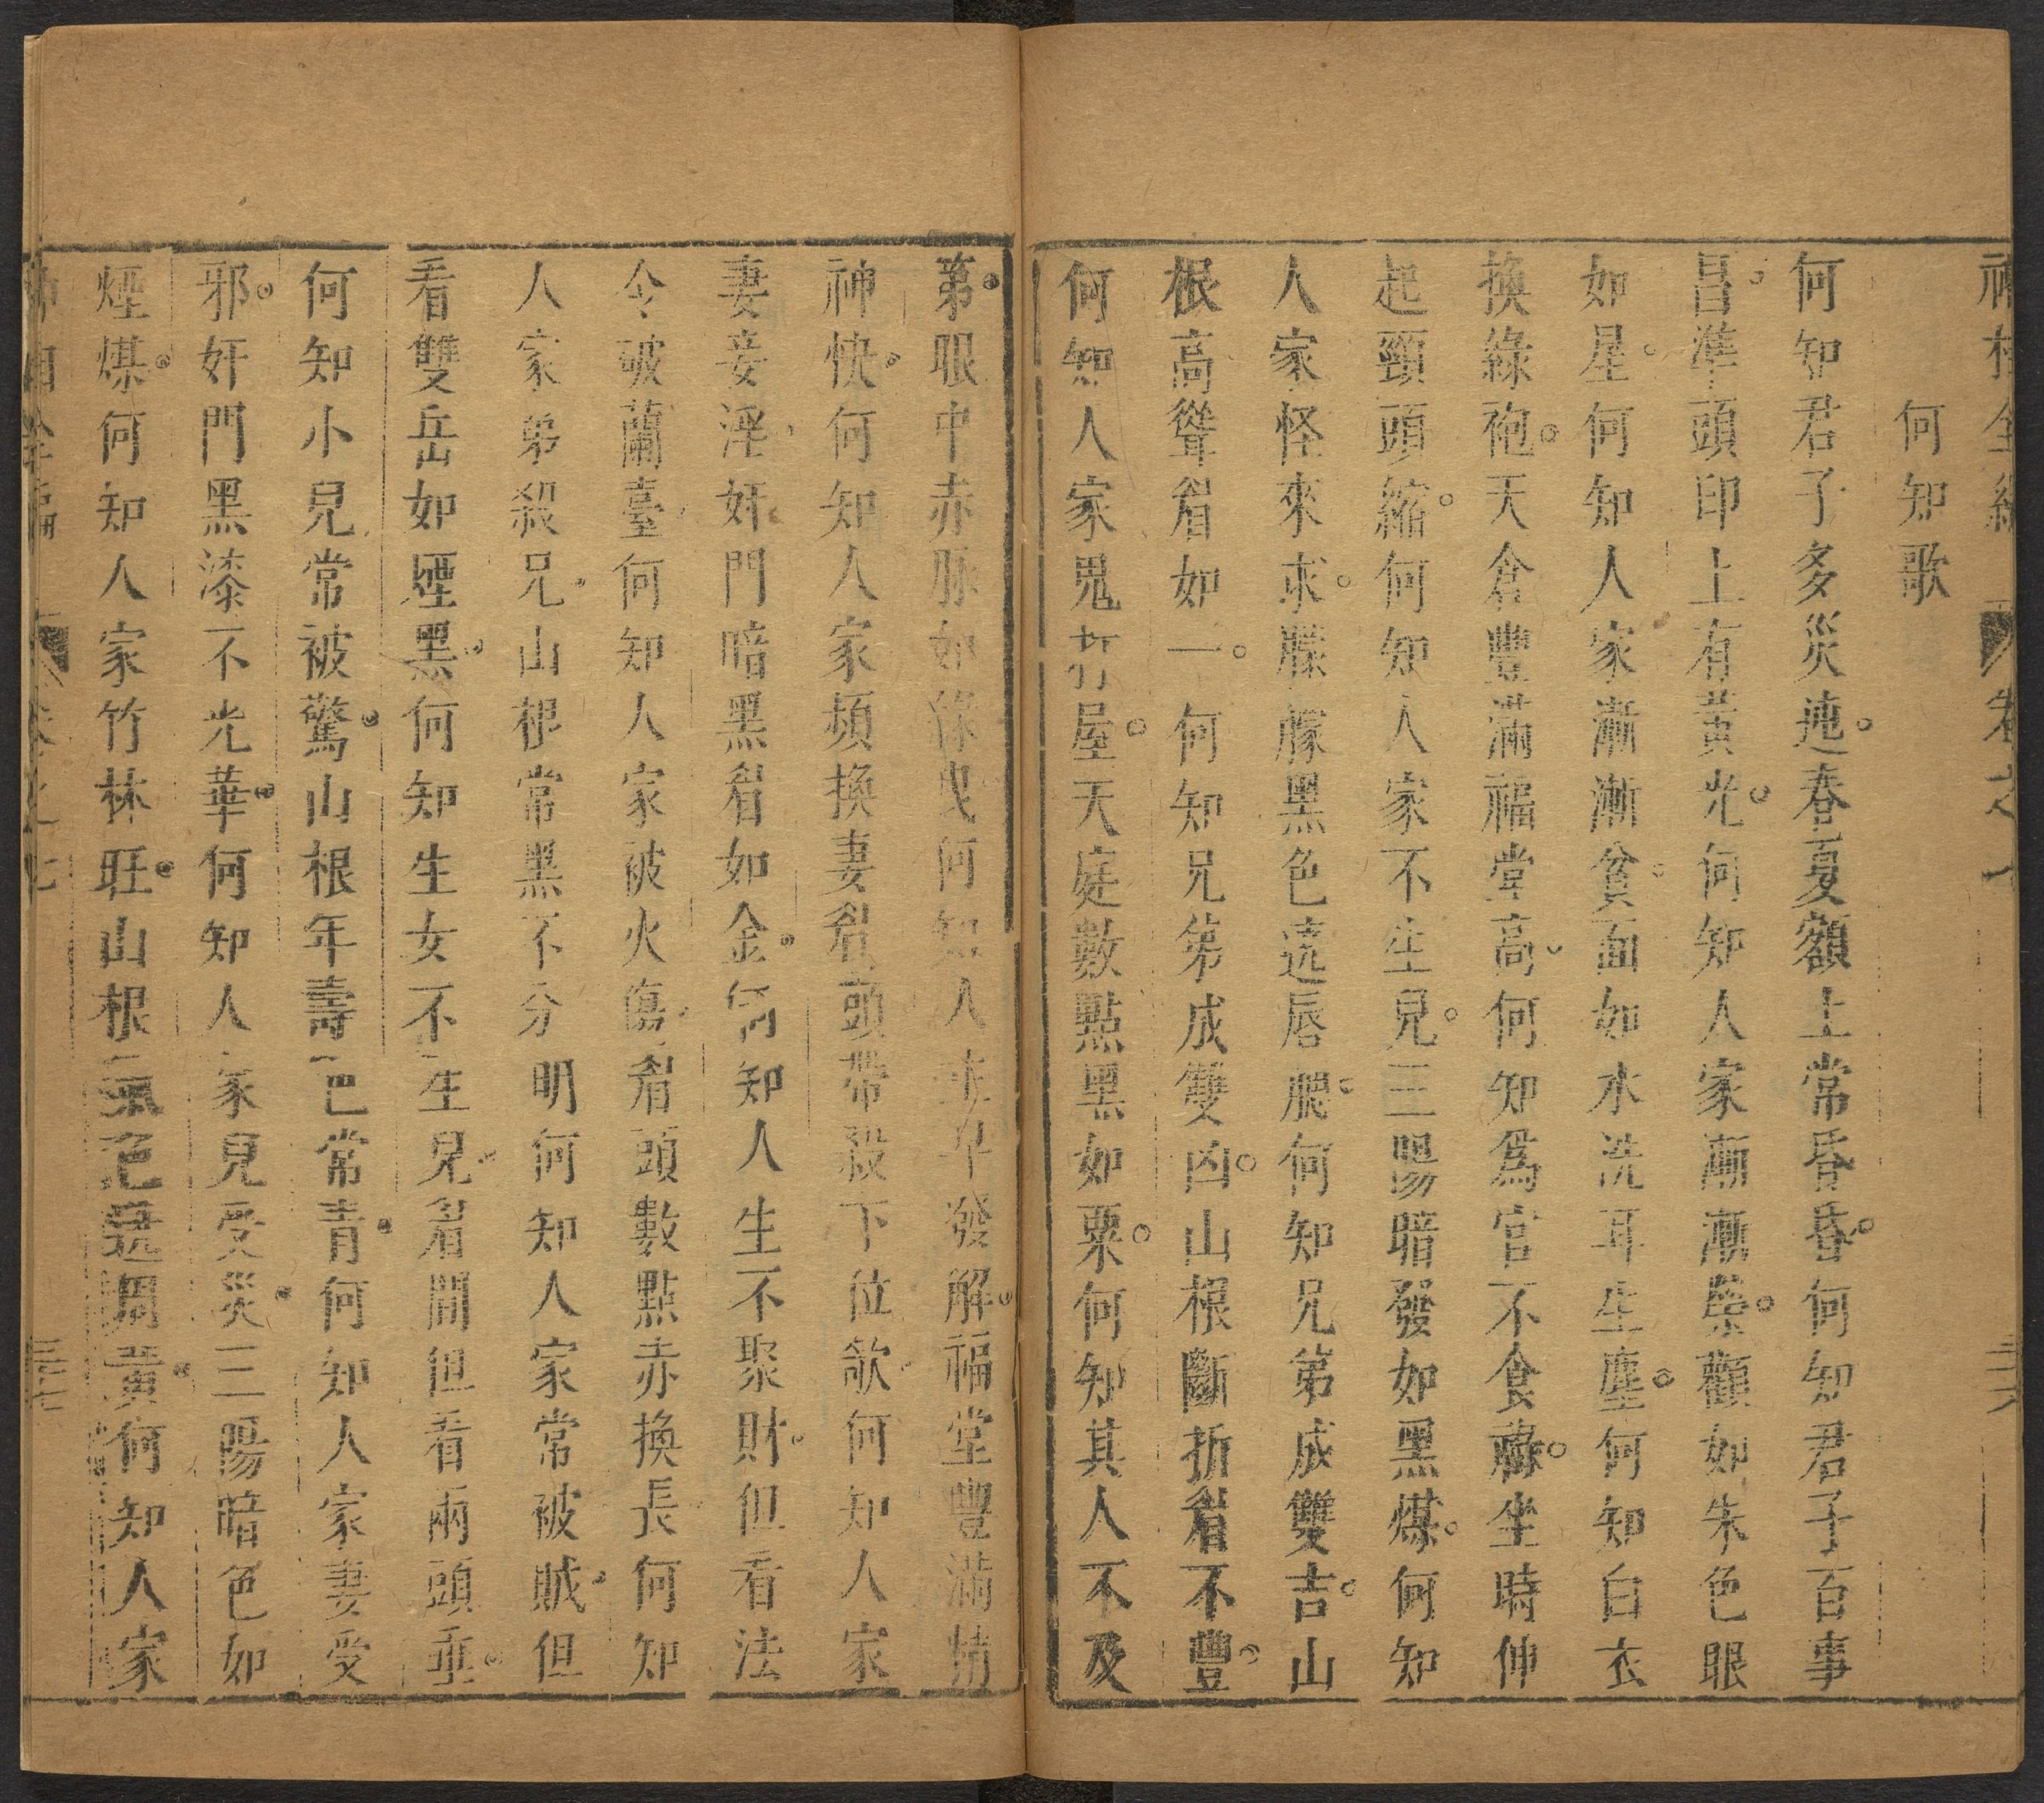 何知歌
何知君子多災迍春夏額上常昏昏何知君子百事
昌準頭印上有黃光何知人家漸漸榮顴如朱色眼
如星何知人家漸漸貧面如水洗耳生塵何知白衣
換綠袍天倉豐滿福堂高何知爲官不食祿坐時伸
起頸頭縮何知人家不生兒三陽暗發如黑煤何知
人家怪來求朦朦黑色遶唇腮何知兄弟成雙吉山
根高聳眉如一何知兄弟成雙凶山根斷折眉不豐
何知人家鬼打屋天庭數點黑如粟何知其人不及
第眼中赤脉如絲曳何知人 早發解福堂豐滿精
神快何知人家頻換妻眉頭帶殺下位欹何知人家
妻妾淫奸門暗黑眉如金何知人生不聚財但看法
令破蘭臺何知人家被火傷眉頭數點赤換長何知
人家弟殺兄山根常黑不分明何知人家常被賊但
看雙岳如煙黑何知生女不生兒眉間但看兩頭垂
何知小兒常被驚山根年壽色常青何知人家妻受
邪奸門黑漆不光華何知人家兒受災三陽暗色如
煙煤何知人家竹林旺山根氣色遶 黃何知人家